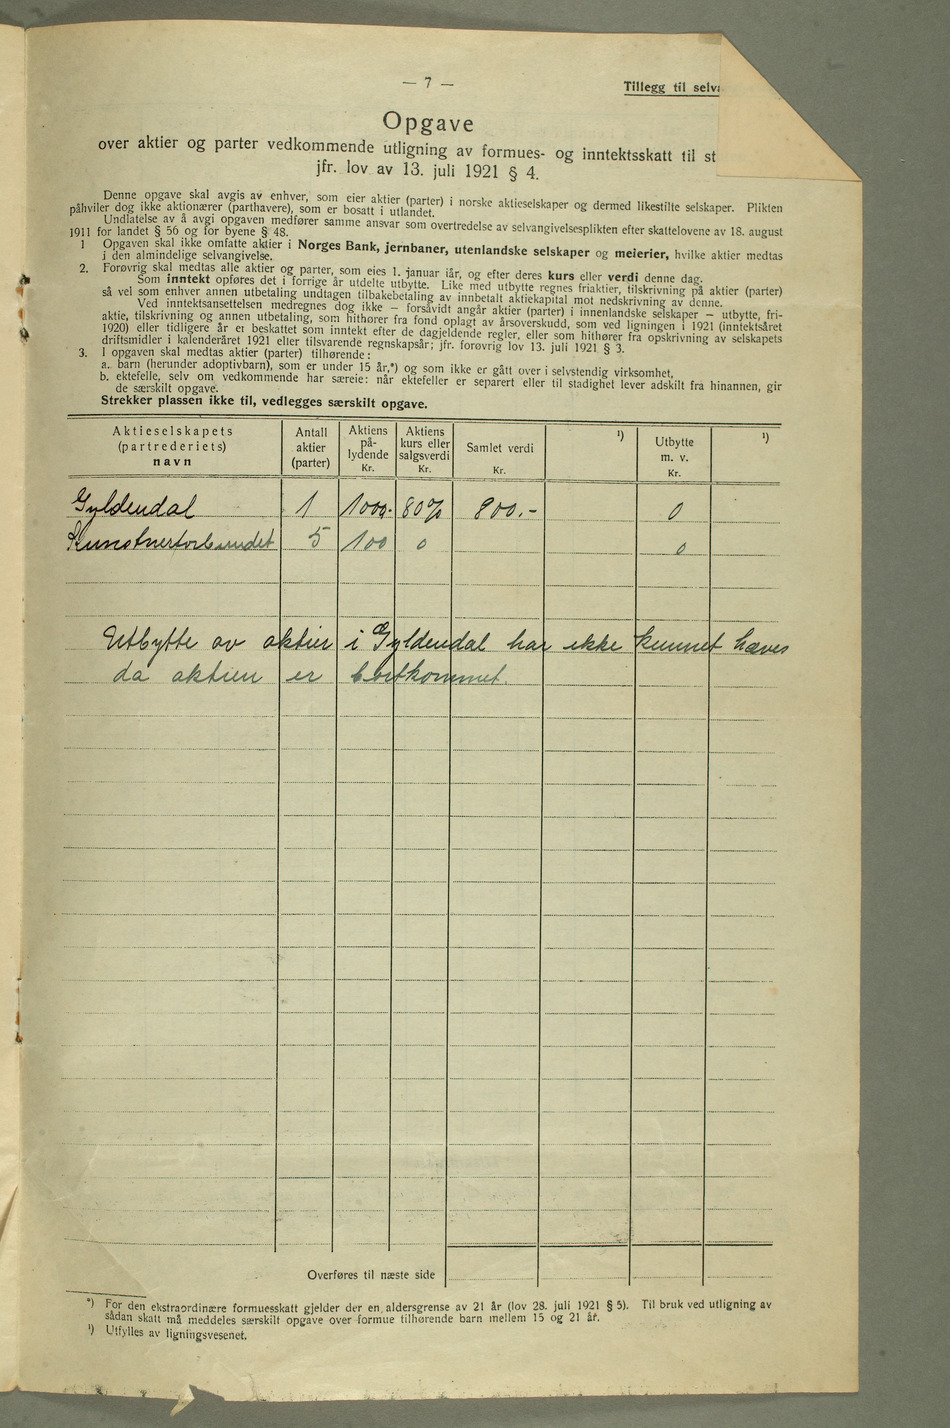 — 7 —
Tillegg til selv
Opgave
over aktier og parter vedkommende utligning av formues- og inntektsskatt til st
jfr. lov av 13. juli 1921 § 4.
Denne opgave skal avgis av enhver, som eier aktier (parter) i norske aktieselskaper og dermed likestilte selskaper. Plikten
påhviler dog ikke aktionærer (parthavere), som er bosatt i utlandet.
Undlatelse av å avgi opgaven medfører samme ansvar som overtredelse av selvangivelsesplikten efter skattelovene av 18. august
1911 for landet § 56 og for byene § 48.
1 Opgaven skal ikke omfatte aktier i Norges Bank, jernbaner, utenlandske selskaper og meierier, hvilke aktier medtas
i den almindelige selvangivelse.
2. Forøvrig skal medtas alle aktier og parter, som eies 1. januar iår, og efter deres kurs eller verdi denne dag.
Som inntekt opføres det i forrige år utdelte utbytte. Like med utbytte regnes friaktier, tilskrivning på aktier (parter)
så vel som enhver annen utbetaling undtagen tilbakebetaling av innbetalt aktiekapital mot nedskrivning av denne.
Ved inntektsansettelsen medregnes dog ikke — forsåvidt angår aktier (parter) i innenlandske selskaper — utbytte, fri-
aktie, tilskrivning og annen utbetaling, som hithører fra fond oplagt av årsoverskudd, som ved ligningen i 1921 (inntektsåret
1920) eller tidligere år er beskattet som inntekt efter de dagjeldende regler, eller som hithører fra opskrivning av selskapets
driftsmidler i kalenderåret 1921 eller tilsvarende regnskapsår; jfr. forøvrig lov 13. juli 1921 § 3.
3. I opgaven skal medtas aktier (parter) tilhørende:
a. barn (herunder adoptivbarn), som er under 15 år,*) og som ikke er gått over i selvstendig virksomhet,
b. ektefelle, selv om vedkommende har særeie: når ektefeller er separert eller til stadighet lever adskilt fra hinannen, gir
de særskilt opgave.
Strekker plassen ikke til, vedlegges særskilt opgave.
Aktieselskapets (partrederiets) navn
Antall aktier (parter)
Aktiens på- lydende Kr.
Aktiens kurs eller salgsverdi Kr.
Samlet verdi Kr.
¹)
Utbytte m. v. Kr.
¹)
Gyldendal 1 1000.- 80% 800.- 0
Kunstnerforbundet 5 100 0 0
Utbytte av aktier i Gyldendal har ikke kunnet hæves
da aktien er bortkommet.
Overføres til næste side
*) For den ekstraordinære formuesskatt gjelder der en aldersgrense av 21 år (lov 28. juli 1921 § 5). Til bruk ved utligning av
sådan skatt må meddeles særskilt opgave over formue tilhørende barn mellem 15 og 21 år.
¹) Utfylles av ligningsvesenet.